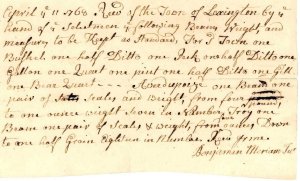 April ye 11 1762 Recd of the Town of Lexington by ye
hand of ye Selectmen ye following Brass Weight, and
measures to be Kept as Standard, For sd Town one
Bushel one half Ditto one Peck one half Ditto one
Gallon one Quart one pint one half Ditto one Gill
one Bear Quart — Averdupoize one Beam one
pair of Scales and Weight, from four pound,
to one ounce weight Seven in Number, Troy one
Beam one pair of Scales & weight, from ounces Down
to one half Grain Eighteen in Number Recd Pr me
Benjamin Meriam